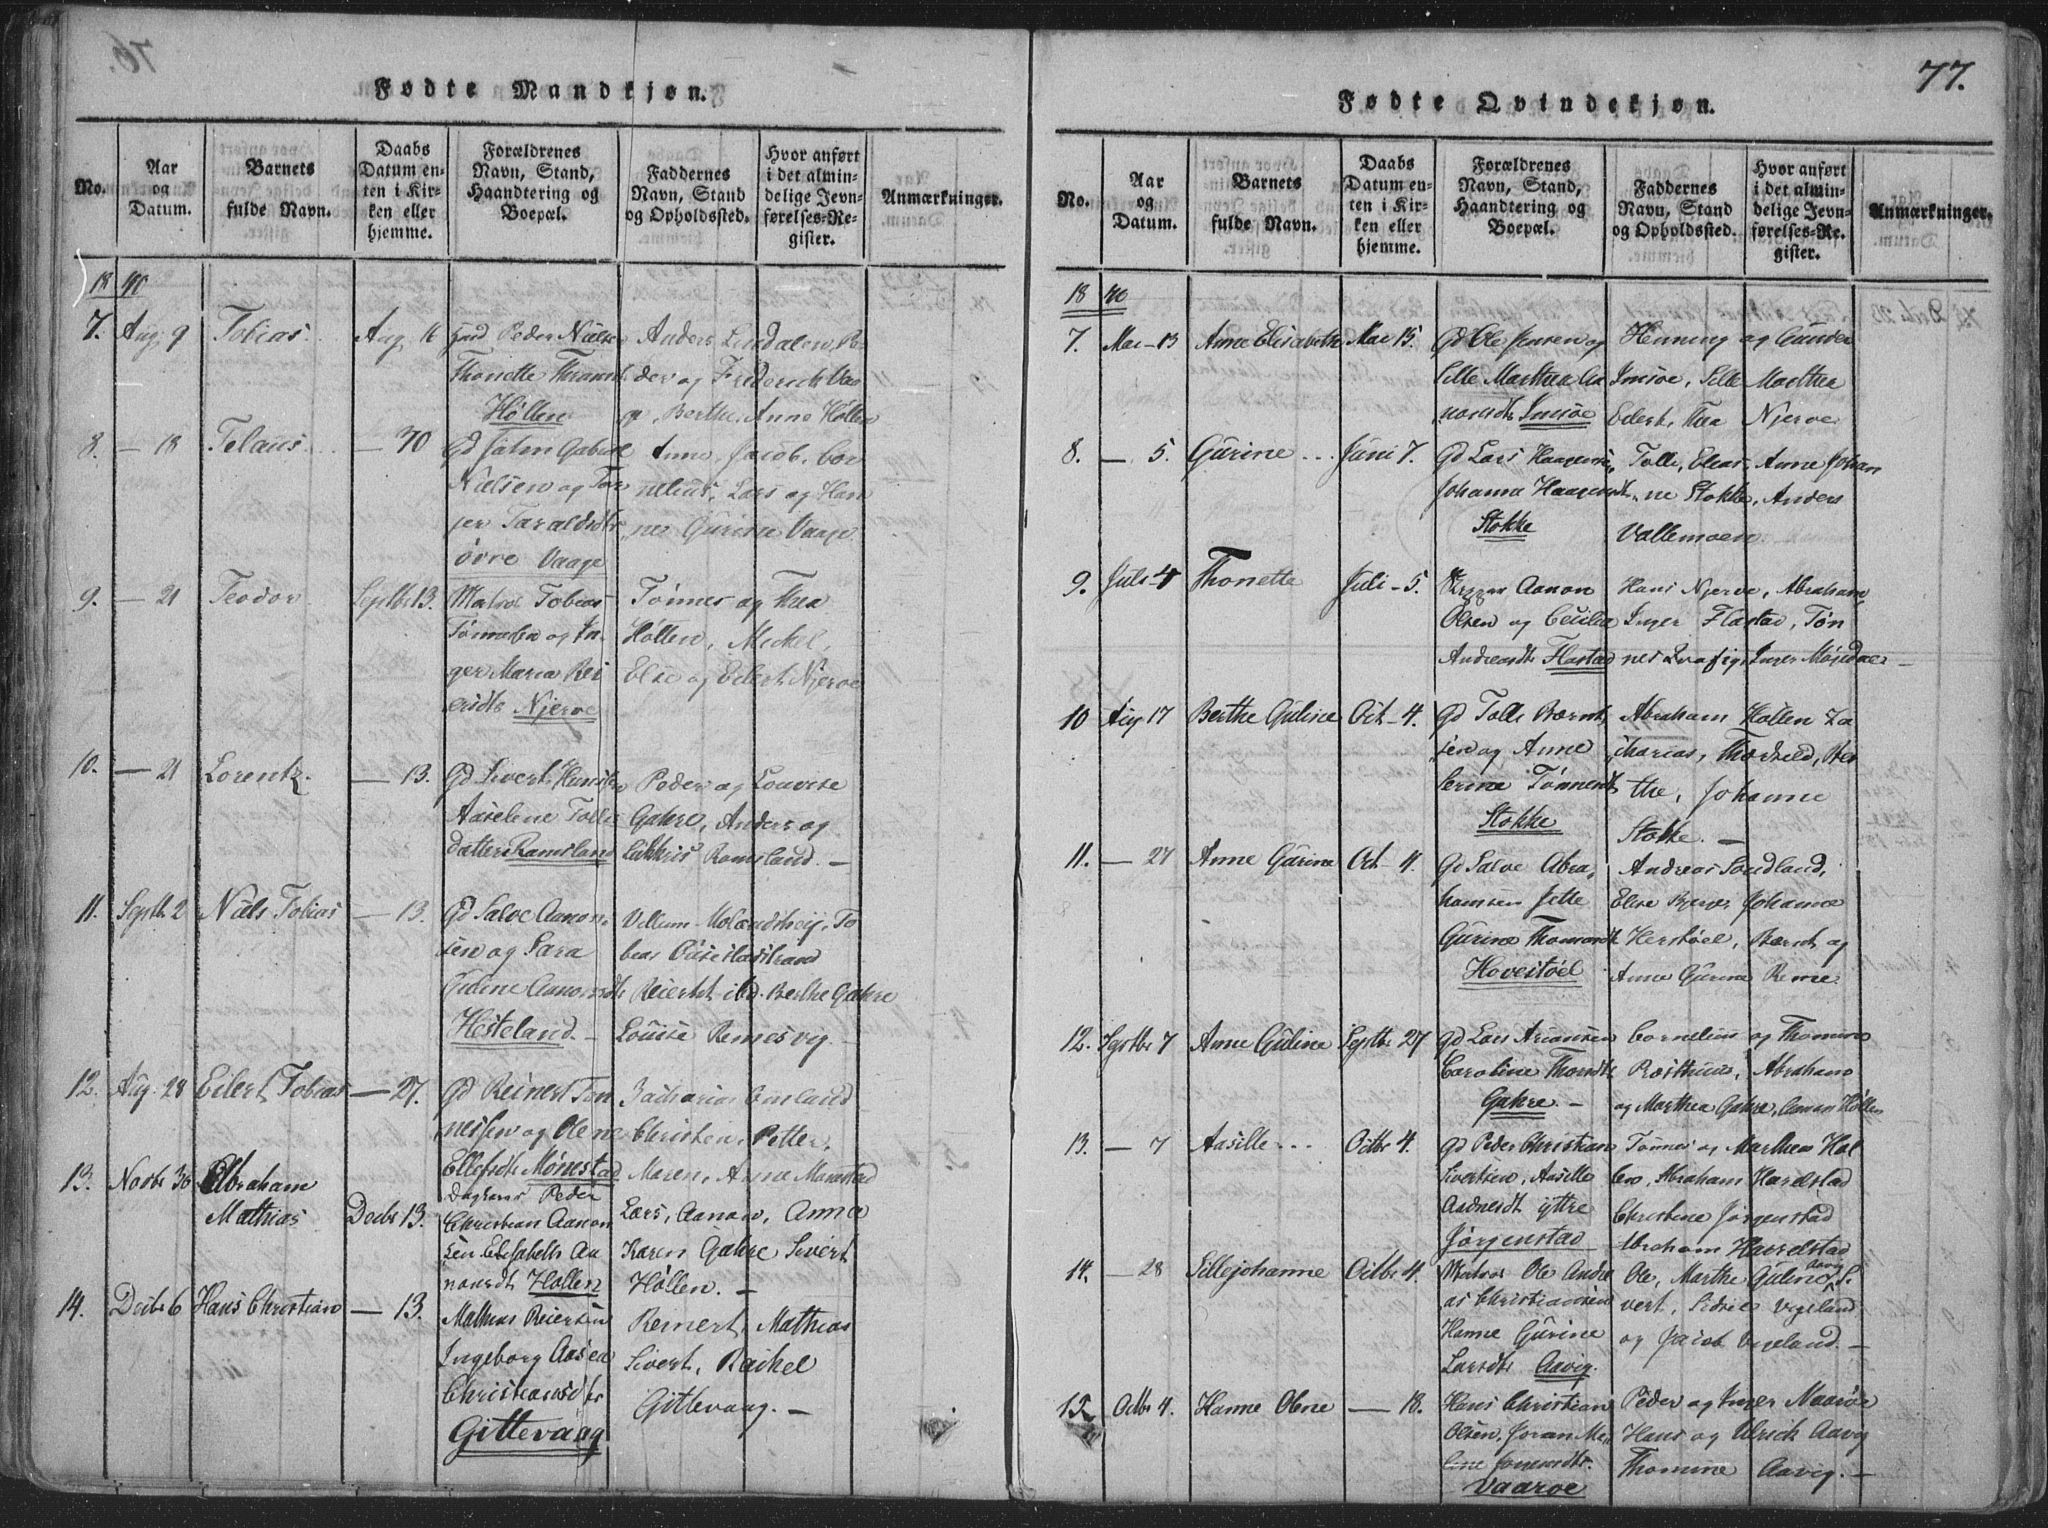 Fødte Mandkjøn.
No.
Aar og Datum.
Barnets fulde Navn.
Daabs Datum enten i Kirken eller hjemme.
Forældrenes Navn, Stand, Haandtering og Boepæl.
Faddernes Navn, Stand og Opholdssted.
Hvor anført i det almindelige Jevnførelses-Register.
Anmærkninger.
1840
7. Aug. 9 Tobias Aug. 16
Peder Nielsen
Thonette
Høllen
Anders Lindalen, Pe
der og Frederich Vaa
ge, Berthe, Anne Høllen
8. — 18 Telaus — 30
Gd John Gabriel
Nielsen og Tor
jer Taraldsdtr
övre Vaage
Anne, Jacob, Cor
nelius, Lars og Han
ne Gurine Vaage
9. — 21 Teodor Septbr 13.
Matros Tobias
Tönnesen og In
ger Maria Rei
ersdtr Njerve
Tönnes og Thea
Höllen, Mickel,
Else og Eilert Njerve
10. — 21 Lorentz. — 13.
Gd Sivert Hansen
Aaselene Tollis
datter Ramsland
Peder og Lovise
Gahre, Anders og
Ramsland. —
11. Septbr 2 Niels Tobias — 13.
Gd Salve Aanon
sen og Sara
Guline Aanonsdtr
Hesteland. —
Villum Molandshei, To
bias
Reiert ibd. Berthe Gahre
Louise Remesvig —
12. Aug. 28 Eilert Tobias — 27.
Gd Reinert Tön
nessen og Olene
Ellefsdtr Mönestad
Zacharias
Christen, Petter,
Maren, Anne Mönestad
13. Novbr 30 Abraham
Mathias Decbr 13.
Peder
Christian Aanon
sen Elisabeth Aa
nonsdt Höllen
Lars, Aanon, Anna
Karen Gahre Sivert
Höllen. —
14. Decbr 6 Hans Christian — 13.
Mathias Reiersen
Ingeborg Aasea
Christiansdtr
Gittevaag
Reinert, Mathias
Sivert, Rachel
Gittevaag. —
77.
Fødte Qvindekjøn.
No.
Aar og Datum.
Barnets fulde Navn.
Daabs Datum enten i Kirken eller hjemme.
Forældrenes Navn, Stand, Haandtering og Boepæl.
Faddernes Navn, Stand og Opholdssted.
Hvor anført i det almindelige Jevnførelses-Register.
Anmærkninger.
1840
7. Mai 13 Anne Elisabeth Mai 15.
Gd Ole Jensen og
Sille Marthea Aa
nonsdtr Imsøe
Henning og Gunder
Imsøe, Sille Marthea
Eilert, Thea Njerve
8. — 5. Gurine Juni 7.
Gd Lars Haagensen,
Johanna Haagensdt
Stokke
Tolle, Elias, Anne Johan
ne Stokke, Anders
Vallemoen
9. Juli 4 Thonette Juli 5.
Aanon
Olsen og Cecilia
Andreasdtr Flastad
Hans Njerve, Abraham,
Inger Flastad, Tön
nes Inger
10 Aug 17 Berthe Guline Oct. 4.
Gd Tolle Bærnt
sen og Anne
Serine Tönnesdt
Stokke
Abraham Höllen Za
charias, Thorkild, Ber
the, Johanne
Stokke. —
11. — 27 Anne Gurine Oct. 4.
Gd Salve Abra
hamsen Jette
Gurine Thomasdt
Hovestöel
Andreas Sandland,
Elise Bjerge Johanne
Herstöel, Bærnt og
Anne Gurine Reme
12. Septbr 7 Anne Guline Septbr 27
Gd Lars Ariansen
Caroline Thorsdtr
Gahre. —
Cornelius og Thomine
Abraham
og Marthea Gahre, Aanon Höllen
13. — 7 Aasille Octbr 4.
Gd Peder Christian
Sivertsen, Aasille
Aadnesdt yttre
Jörgenstad
Tönnes og Marthea Hol
Abraham Harelstad
Christine Jörgenstad
Abraham Hasselstad
14. — 28 Sillejohanne Octbr 4.
Matros Ole Andre
as Christiansen
Hanne Gurine
Larsdtr Aavig.
Ole, Marthe Guline Aavig, Si
vert, Sidsel Vigeland
og Jacob Vigeland. —
15. Octbr 4. Hanne Olene — 18.
Hans Christian
Olsen, Joran Ma
Vaaröe
Peder og Inger Vaaröe
Hans og Ulrich Aavig
Thomine Aavig. —